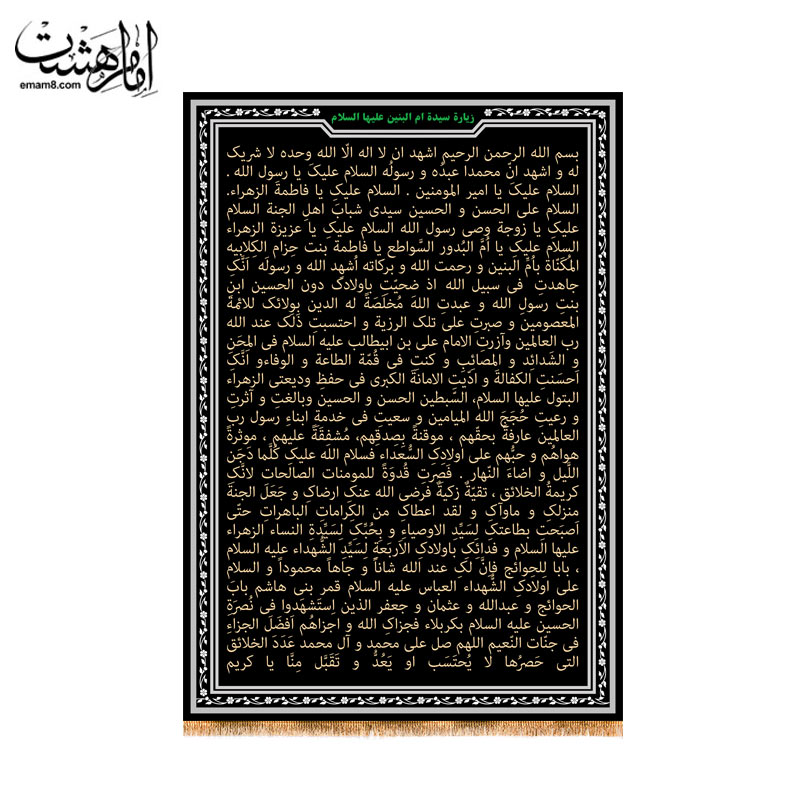 امام هشت
emam8.com
زیارة سیدة ام البنین علیها السلام
بسم الله الرحمن الرحیم اشهد ان لا اله الّا الله وحده لا شریک
له و اشهد انّ محمدا عبدُه و رسولُه السلام علیکَ یا رسول الله .
السلام علیکَ یا امیر المومنین . السلام علیکِ یا فاطمةَ الزهراء.
السلام علی الحسن و الحسین سیدی شبابَ اهلِ الجنة السلام
علیکِ یا زوجة وصی رسول الله السلام علیکِ یا عزیزة الزهراء
السلام علیکِ یا اُمَّ البُدور السَّواطع یا فاطمة بنت حِزام الکِلابیه
المُکَنّاة باُمِّ البنین و رحمت الله و برکاته اُشهِد الله و رسولَه اَنَّکِ
جاهدتِ فی سبیل الله اذ ضحیّتِ باولادکِ دون الحسین ابنِ
بنتِ رسولِ الله و عبدتِ اللهَ مُخلَصَةً له الدین بِولائک للائمّة
المَعصومین و صبرتِ علی تلک الرزیة و احتسبتِ ذلک عند الله
رب العالمین وآزرتِ الامام علی بن ابیطالب علیه السلام فی المِحَنِ
و الشَدائد و المصائِبِ و کنتِ فی قُمّة الطاعة و الوفاءو اَنَّکَ
اَحسَنتِ الکفالةَ و ادّیتِ الامانَةَ الکبری فی حفظِ ودیعتی الزهراء
البتول علیها السلام، السِّبطین الحسن و الحسین وبالغتِ و آثرتِ
و رعیتِ حُجَجَ الله المیامین و سعیتِ فی خدمةِ ابناءِ رسول ربِ
العالمین عارفةً بحقّهم ، موقنةً بِصِدقِهم، مُشفِقَةً علیهم ، موثرةً
هواهُم و حبُّهم علی اولادکِ السُّعداء فسلام الله علیکِ کُلَّما دَجَن
اللَّیل و اضاءَ النّهار . فَصِرتِ قُدوَةً للمومنات الصالحات لانَّکِ
کریمةُ الخلائق ، تقیّةٌ زکیةٌ فرضی الله عنکِ ارضاکِ و جَعَلَ الجنةَ
منزلکِ و ماوآکِ و لقد اعطاکِ من الکَراماتِ الباهراتِ حتّی
اَصبَحتِ بطاعتکِ لسَیِّدِ الاوصیاءِ و بِحُبِّکِ لِسَیِّدَةِ النساء الزهراء
علیها السلام و فدائکِ باولادکِ الاَربَعَةِ لِسَیِّدِ الشُّهداء علیه السلام
، بابا للحوائج فإنَّ لکِ عند الله شاناً و جاهاً محموداً و السلام
علی اولادکِ الشُّهداء العباس علیه السلام قمر بنی هاشم بابَ
الحوائج و عبدالله و عثمان و جعفر الذین اِستَشهَدوا فی نُصرَةِ
الحسین علیه السلام بکربلاء فجزاکِ الله و اجزاهُم اَفضَلَ الجزاءِ
فی جنّات النّعیم اللهم صل علی محمد و آل محمد عَدَدَ الخلائق
التی حَصرُها لا یُحتَسَب او یَعُدُّ و تَقَبَّل مِنَّا یا کریم